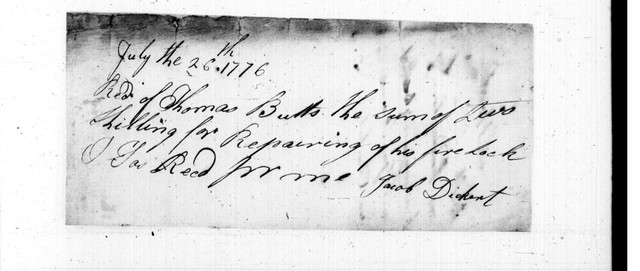 July the 26th 1776
Recd of Thomas Butts the sum of Two
Shilling for Repairing of his fire Lock
Recd pr me Jacob Dickert